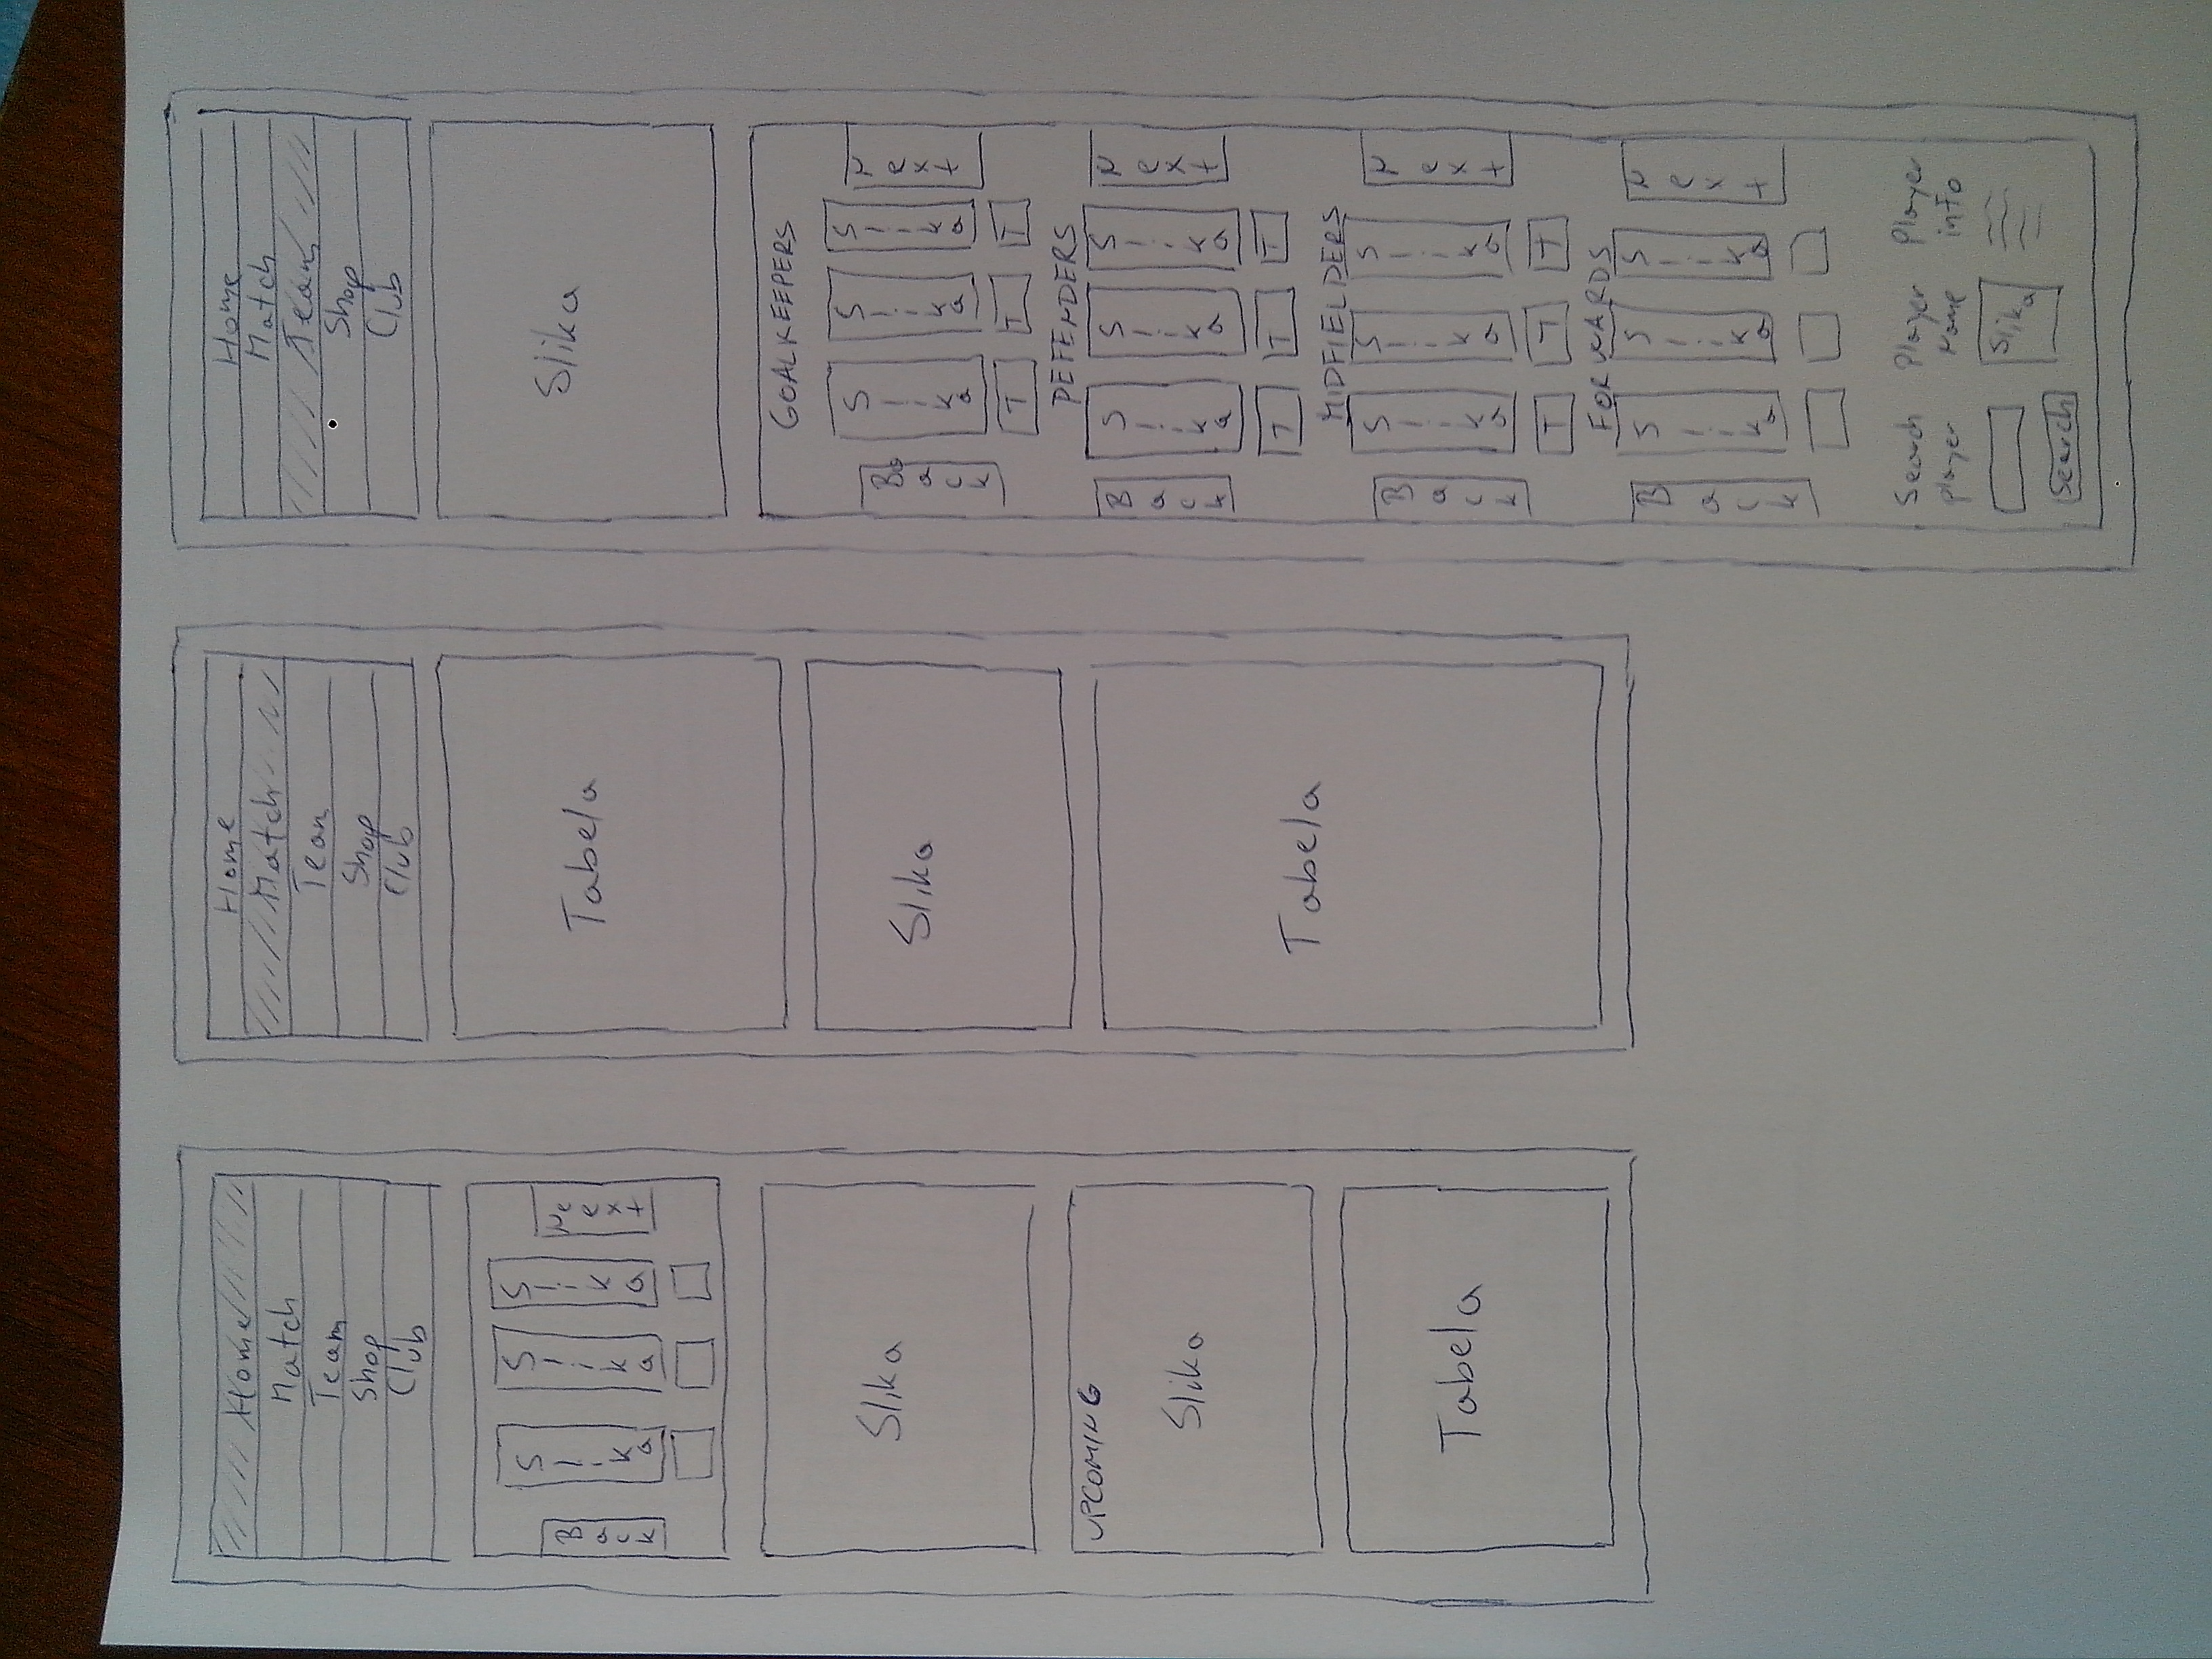 Home
Match
Team
Shop
Club
Back
Slika
Slika
Slika
Neext
Slika
UPCOMING
Slika
Tabela
Home
Match
Team
Shop
Club
Tabela
Slika
Tabela
Home
Match
Team
Shop
Club
Slika
GOALKEEPERS
Baack
Slika
Slika
Slika
Next
T
T
T
DEFENDERS
Back
Slika
Slika
Slika
Next
T
T
T
MIDFIELDERS
Back
Slika
Slika
Slika
Next
T
T
T
FORWARDS
Back
Slika
Slika
Slika
Next
Search Player Player
player Name info
Slika
Search